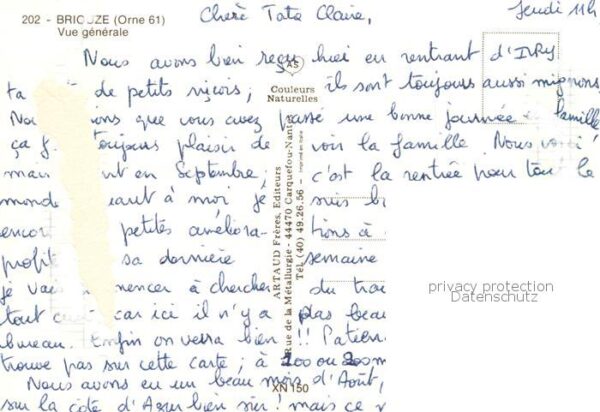 202 - BRIOUZE (Orne 61)
Vue générale
Chère Tata Claire,
Jeudi 11h
Nous avons bien reçu hier en rentrant d'IVRY
ta de petits niçois, ils sont toujours aussi mignons,
AS
Couleurs
Naturelles
Nous que vous avez passé une bonne journée famille
ça toujours plaisir de voir la famille. Nous
en Septembre, c'est la rentrée pour tout le
monde quant à moi, je suis
encor petites améliora- tions à
profit sa dernière semaine
je vais mencer à chercher du trav
tout car ici il n'y a plus beau
bureau. Enfin on verra bien !! Patien
trouve pas sur cette carte ; à 100 ou 200 m
Nous avons eu un beau mois d'Août,
sur la côte d'Azur bien sûr ! mais ce
ARTAUD Frères, Editeurs
Rue de la Métallurgie - 44470 Carquefou-Nantes
Tél. (40) 49.26.56 -
XN 150
privacy protection
Datenschutz